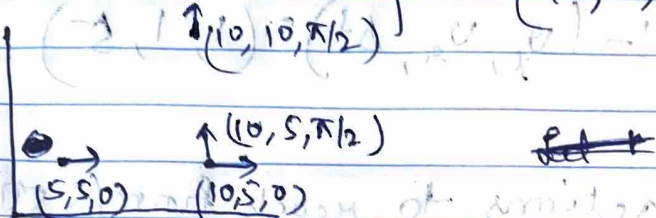 (10, 10, π/2)
(10, 5, π/2)
(5, 5, 0) (10, 5, 0)